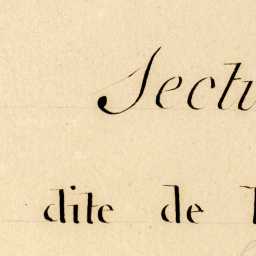 Secti
dite de